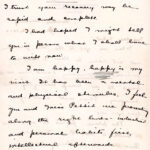 I trust your recovery may be
rapid and complete.
I had hoped I might tell
you in person what I shall have
to write now.
I am happy, happy in my
time. It has been a mental
and physical stimulus. I feel
you and Miss are proud
along the right lines -
and personal habits first,
intellectual afterwards.